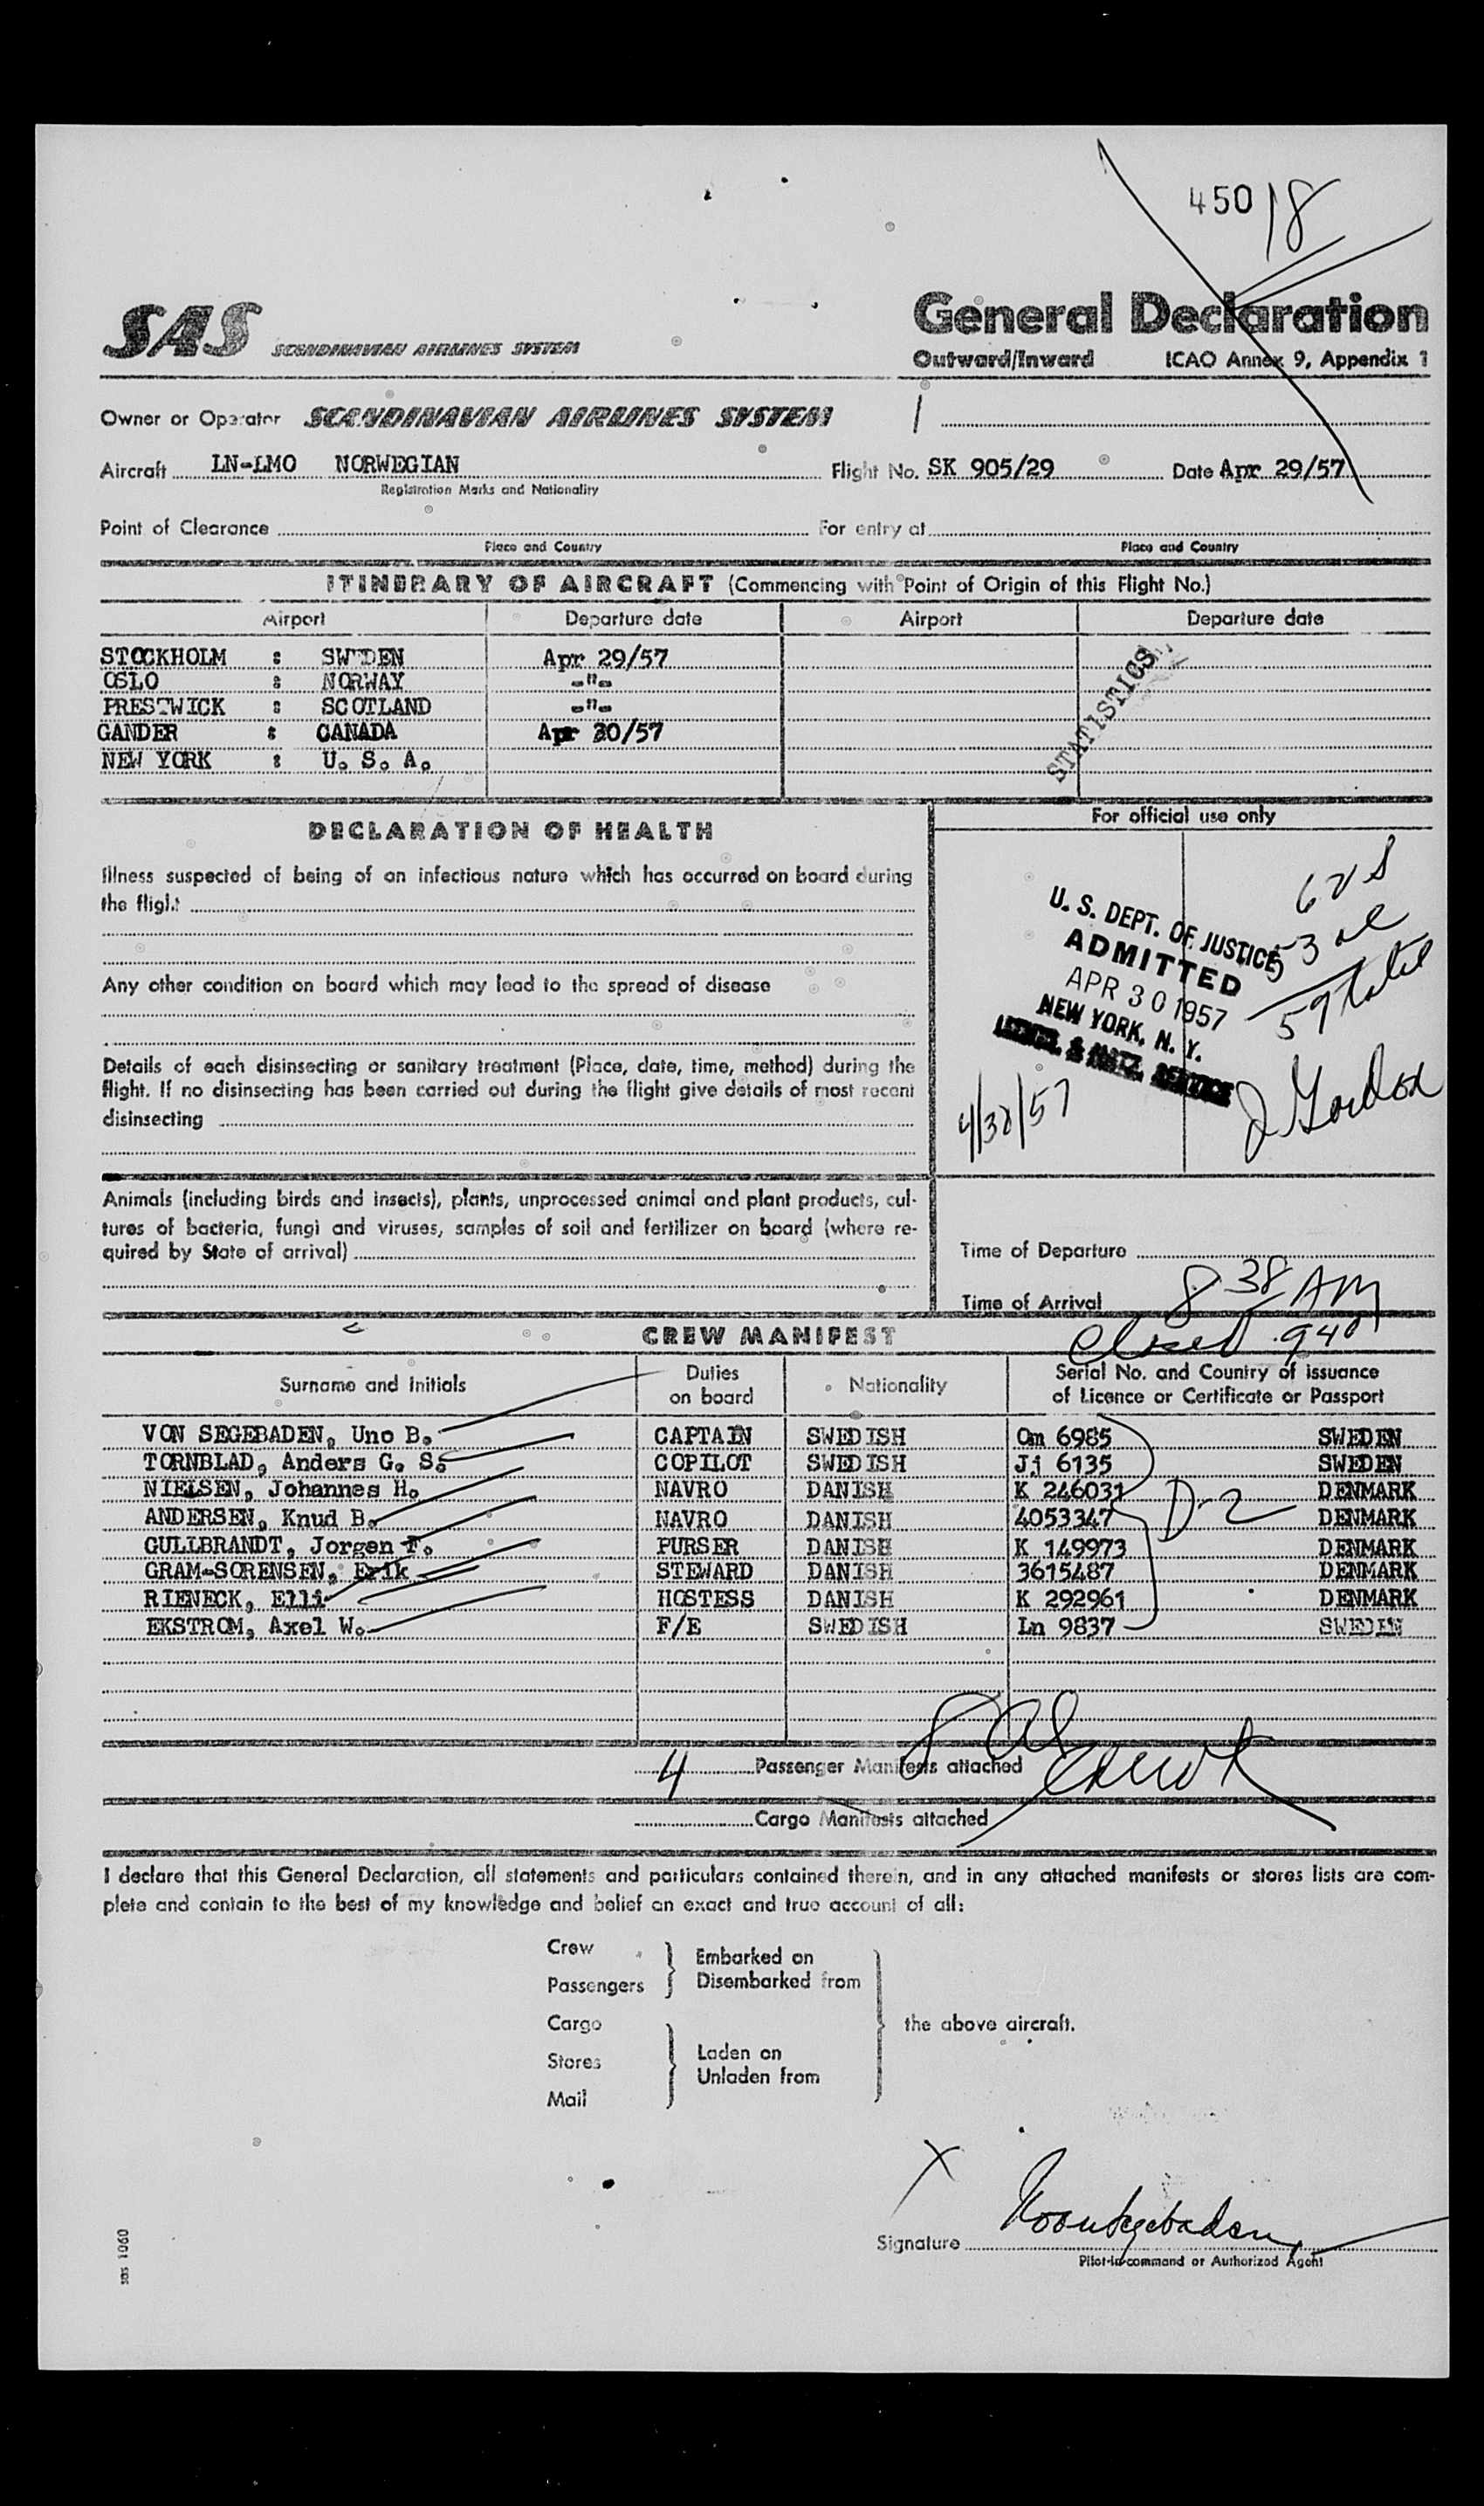 450 18
SAS SCANDINAVIAN AIRLINES SYSTEM
General Declaration
Outward/Inward ICAO Annex 9, Appendix 1
Owner or Operator SCANDINAVIAN AIRLINES SYSTEM
Aircraft LN-LMO NORWEGIAN Flight No. SK 905/29 Date Apr 29/57
Registration Marks and Nationality
Point of Clearance For entry at
Place and Country Place and Country
ITINERARY OF AIRCRAFT (Commencing with Point of Origin of this Flight No.)
Airport Departure date Airport Departure date
STOCKHOLM : SWEDEN Apr 29/57
OSLO : NORWAY -"-
PRESTWICK : SCOTLAND -"-
GANDER : CANADA Apr 30/57
NEW YORK : U. S. A.
STATISTICS
DECLARATION OF HEALTH
Illness suspected of being of an infectious nature which has occurred on board during
the flight
Any other condition on board which may lead to the spread of disease
Details of each disinsecting or sanitary treatment (Place, date, time, method) during the
flight. If no disinsecting has been carried out during the flight give details of most recent
disinsecting
For official use only
U. S. DEPT. OF JUSTICE
ADMITTED
APR 30 1957
NEW YORK, N. Y.
IMMIG. & NATZ. SERVICE
6 US
53 al
59 total
J Gordon
4/30/57
Animals (including birds and insects), plants, unprocessed animal and plant products, cul-
tures of bacteria, fungi and viruses, samples of soil and fertilizer on board (where re-
quired by State of arrival)
Time of Departure
Time of Arrival 8 38 AM
Closed 940
CREW MANIFEST
Surname and Initials Duties on board Nationality Serial No. and Country of issuance of Licence or Certificate or Passport
VON SEGEBADEN, Uno B. CAPTAIN SWEDISH Om 6985 SWEDEN
TORNBLAD, Anders G. S. COPILOT SWEDISH Jj 6135 SWEDEN
NIELSEN, Johannes H. NAVRO DANISH K 246031 DENMARK
ANDERSEN, Knud B. NAVRO DANISH 4053347 DENMARK
GULLBRANDT, Jorgen F. PURSER DANISH K 149973 DENMARK
GRAM-SORENSEN, Erik STEWARD DANISH 3615487 DENMARK
RIENECK, Elli HOSTESS DANISH K 292961 DENMARK
EKSTROM, Axel W. F/E SWEDISH Ln 9837 SWEDEN
D-2
8 al
4 Passenger Manifests attached
Cargo Manifests attached
I declare that this General Declaration, all statements and particulars contained therein, and in any attached manifests or stores lists are com-
plete and contain to the best of my knowledge and belief an exact and true account of all:
Crew
Passengers
Embarked on
Disembarked from
Cargo
Stores
Mail
Laden on
Unladen from
the above aircraft.
X
Signature
Pilot-in-command or Authorized Agent
sas 1060